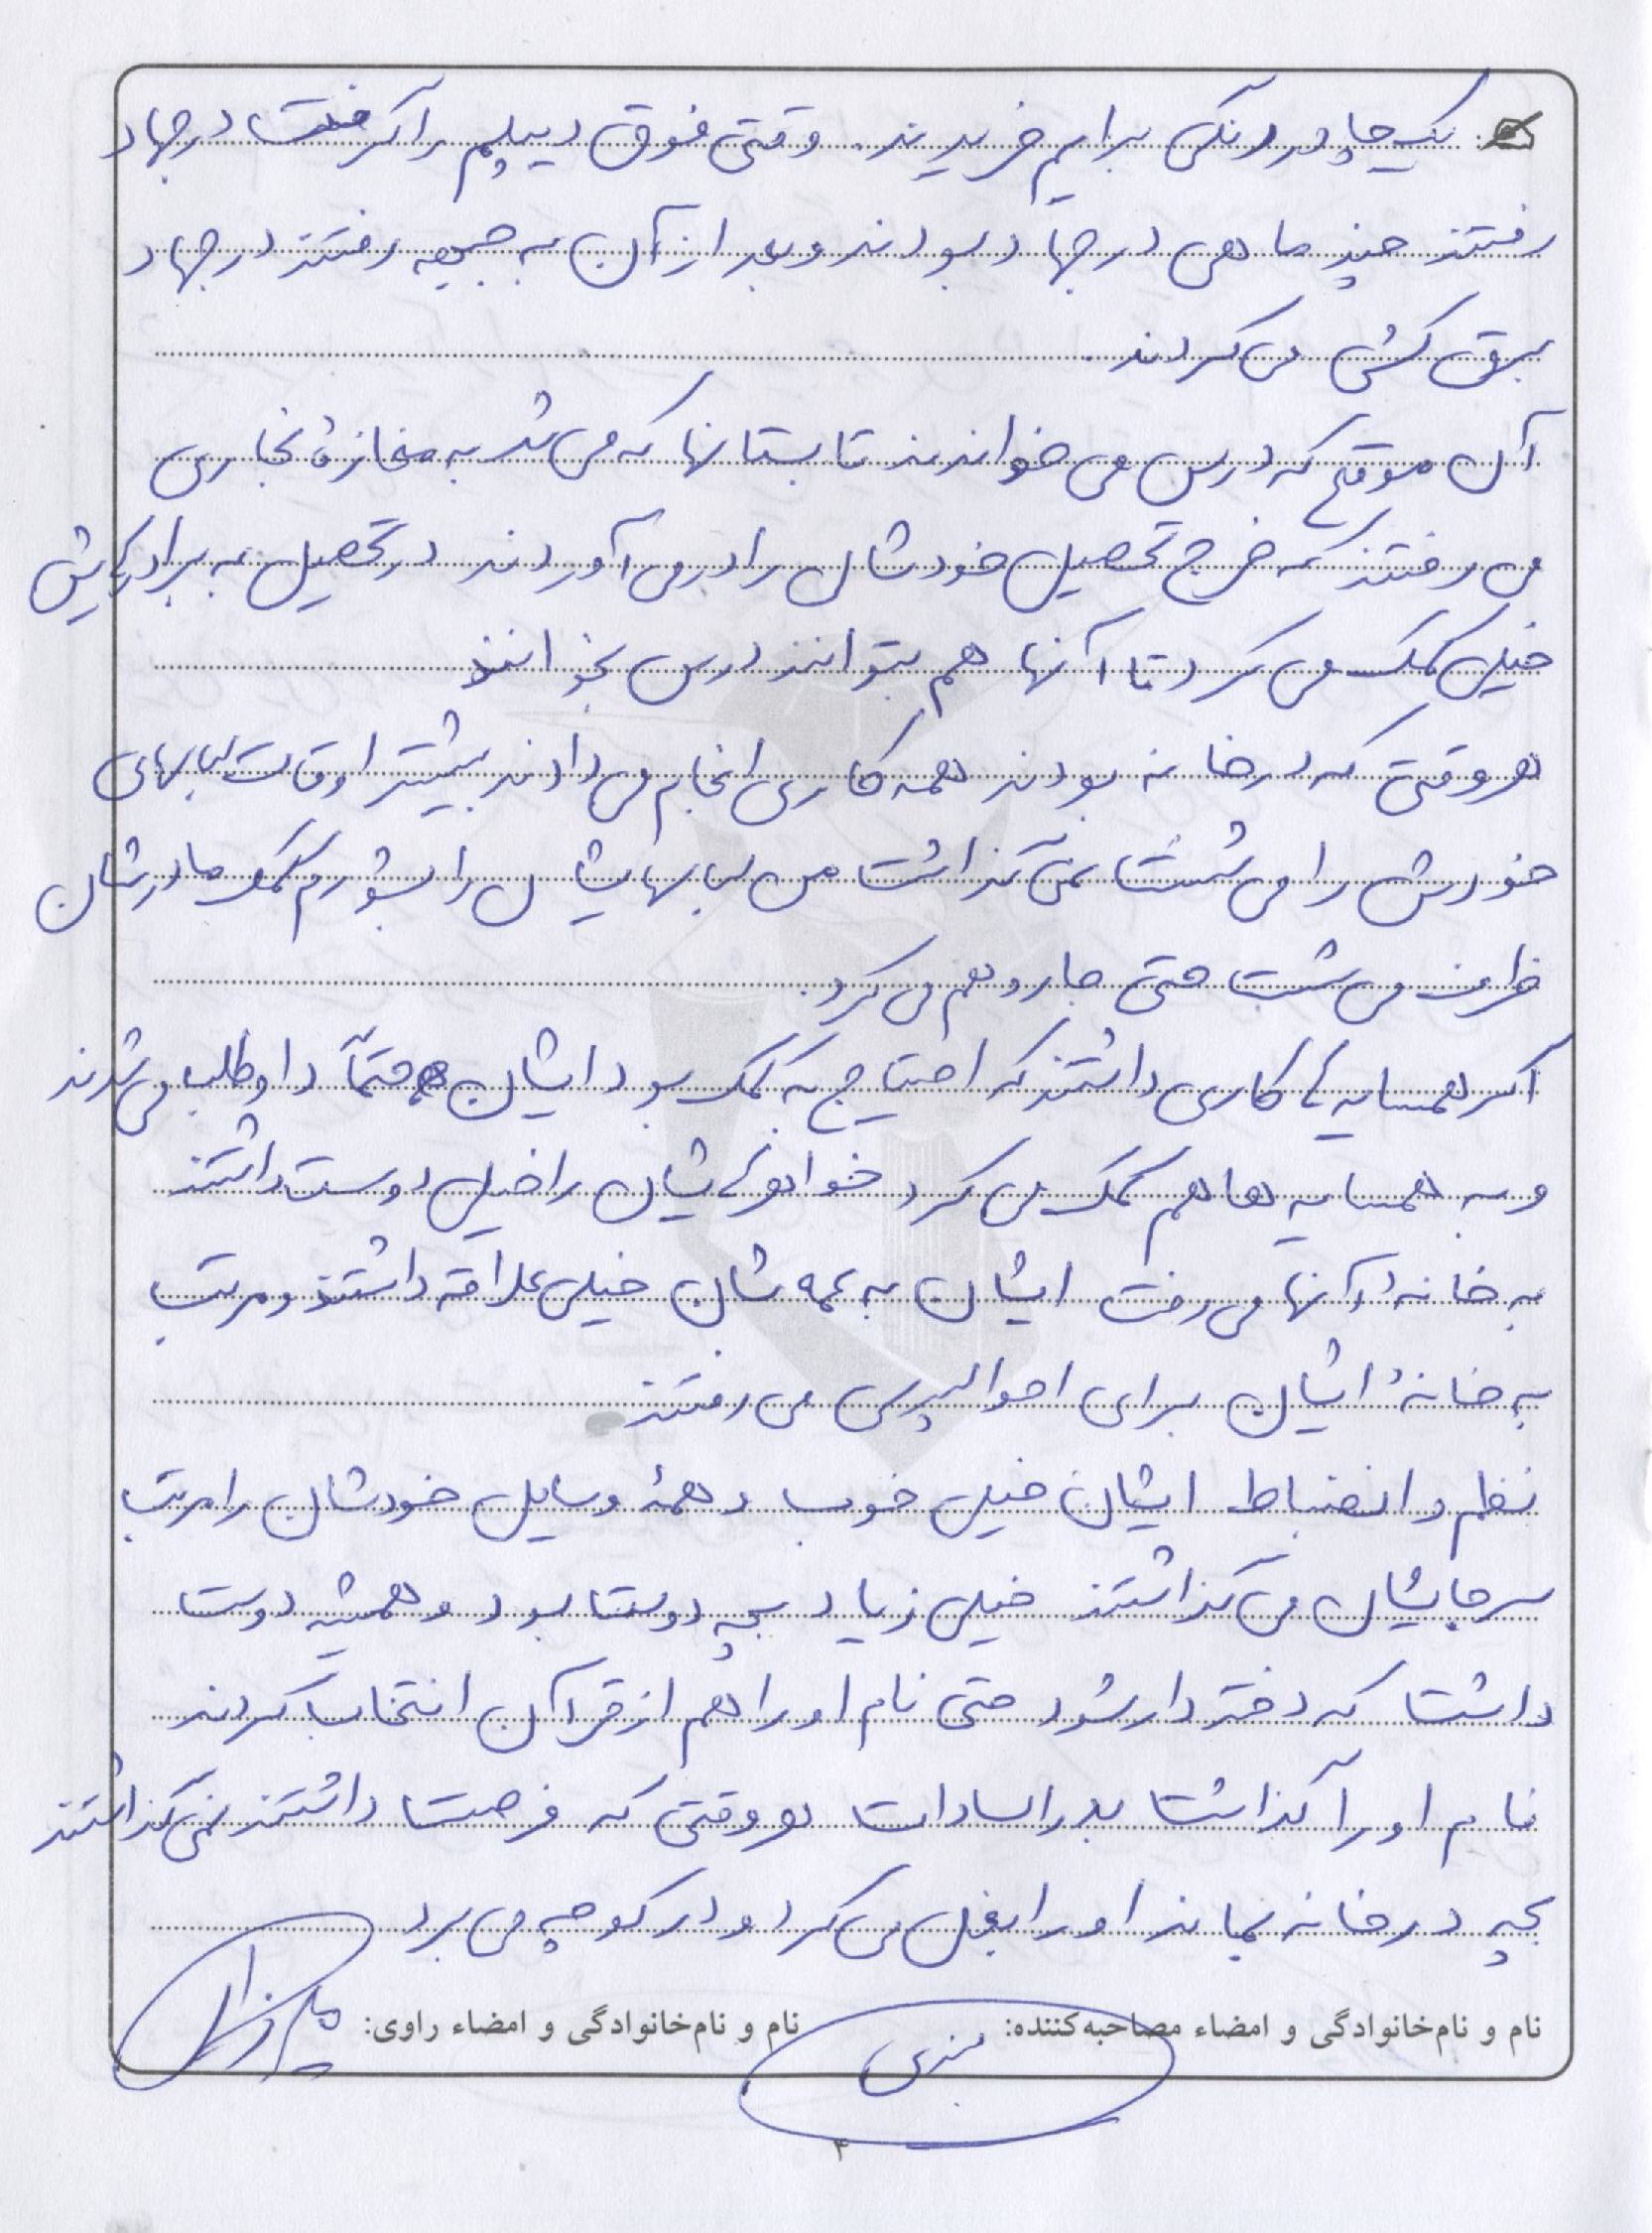 یک چادر رنگی برایم خریدند. وقتی فوق دیپلم را گرفت در جهاد
رفتند چند ماهی در جهاد بودند و بعد از آن به جبهه رفتند در جهاد
برق کشی می کردند.
آن موقع که درس می خواندند تابستانها که می شد به مغازهٔ نجاری
می رفتند که خرج تحصیل خودشان را در می آوردند در تحصیل به برادرهایش
خیلی کمک می کرد تا آنها هم بتوانند درس بخوانند
هر وقتی که در خانه بودند همه کاری انجام می دادند بیشتر اوقات لباسهای
خودش را می شست نمی گذاشت من لباسهایشان را بشورم کمک مادرشان
ظرف می شست حتی جارو هم می کرد.
اگر همسایه ای کاری داشتند که احتیاج به کمک بود ایشان حتماً داوطلب می شدند
و به همسایه ها هم کمک می کرد خواهرهایشان را خیلی دوست داشتند
به خانهٔ آنها می رفت ایشان به عمه شان خیلی علاقه داشتند و مرتب
به خانهٔ ایشان برای احوالپرسی می رفتند
نظم و انضباط ایشان خیلی خوب و همهٔ وسایل خودشان را مرتب
سرجایشان می گذاشتند خیلی زیاد بچه دوست بود و همیشه دوست
داشت که دختردار شود حتی نام او را هم از قرآن انتخاب کردند
نام او را گذاشت بدرالسادات هر وقتی که فرصت داشتند نمی گذاشتند
بچه در خانه بماند او را بغل می کرد و در کوچه می برد
نام و نام‌خانوادگی و امضاء مصاحبه‌کننده: نام و نام‌خانوادگی و امضاء راوی:
۴